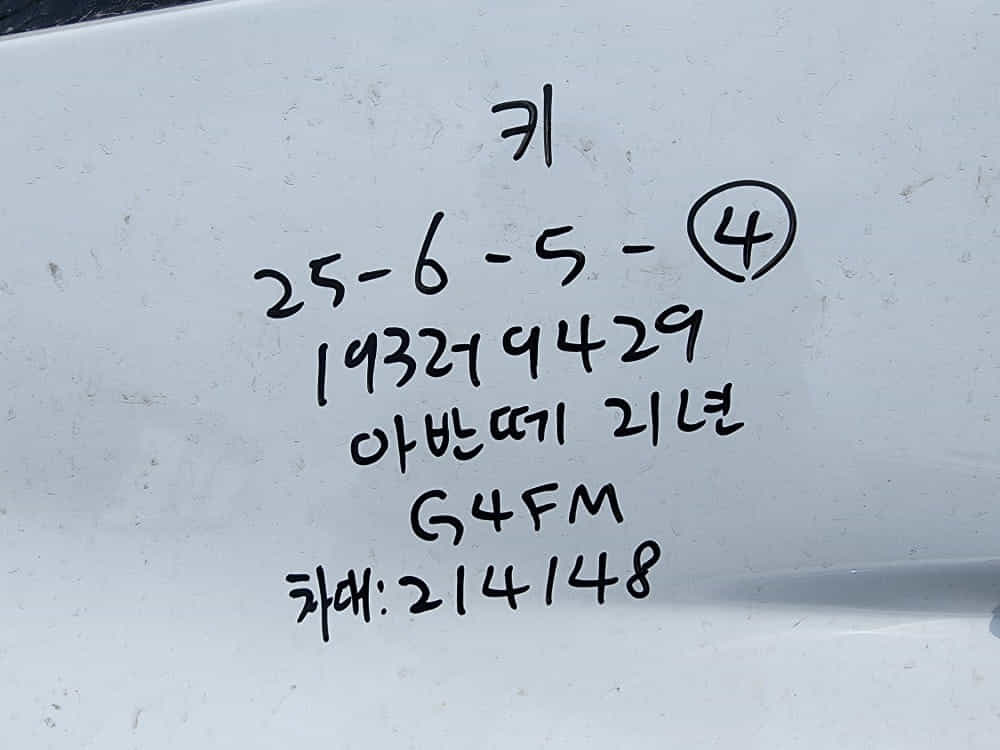 키
25-6-5-④
193거9429
아반떼 21년
G4FM
차대:214148